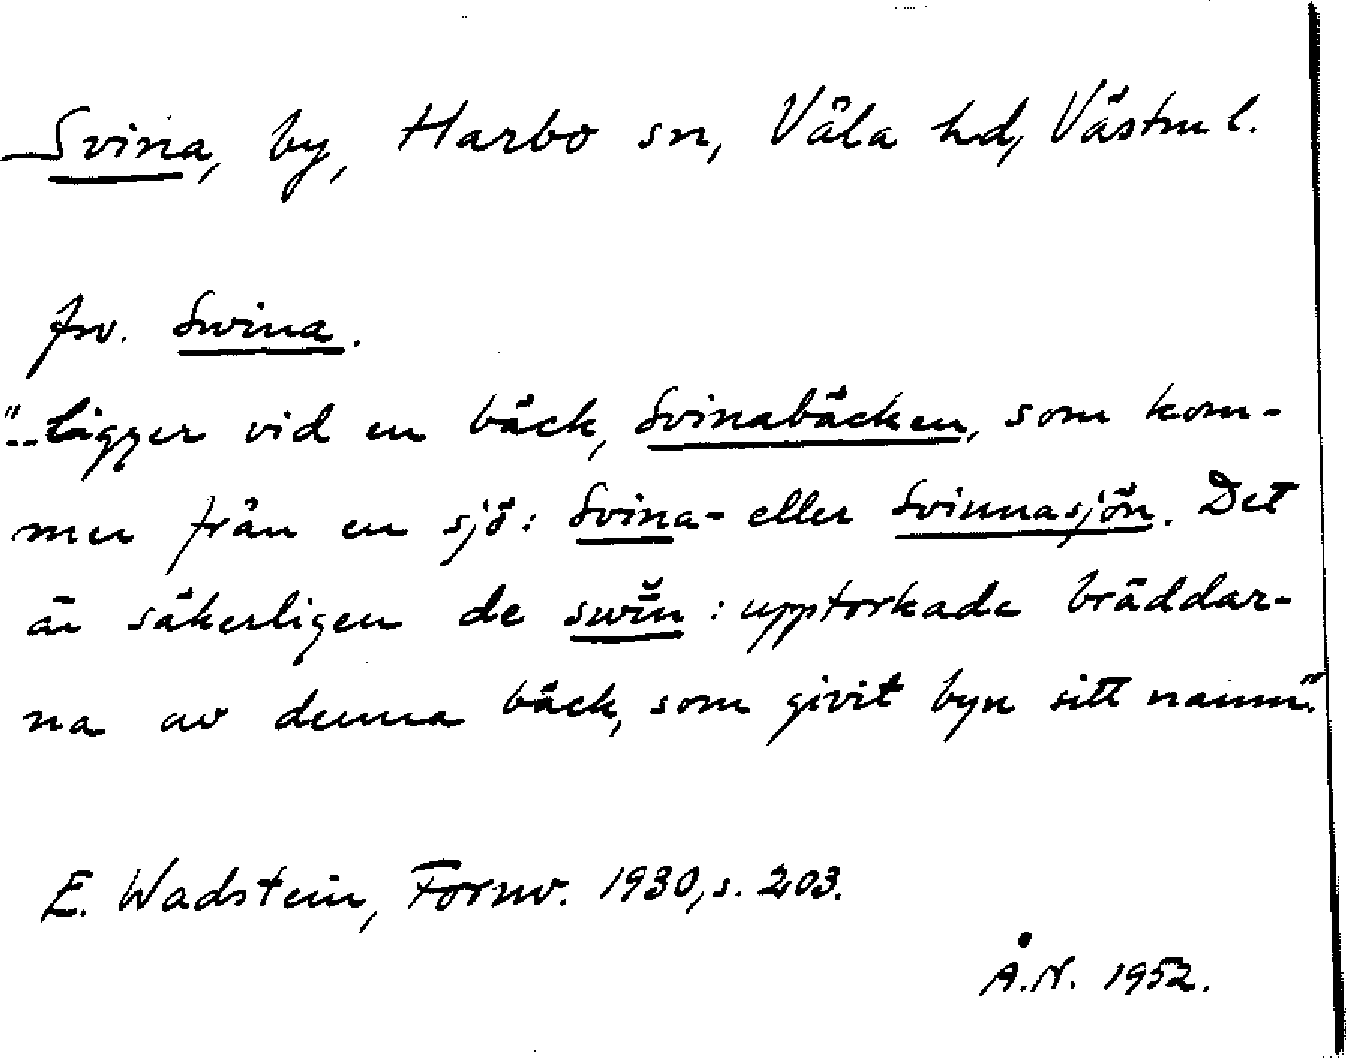 Svina, by, Harbo sn, Våla hd, Västm l.
fsv. Swina.
"..ligger vid en bäck, Svinabäcken, som kom-
mer från en sjö: Svina- eller Svinnasjön. Det
är säkerligen de swīn : upptorkade bräddar-
na av denna bäck, som givit byn sitt namn".
E. Wadstein, Fornv. 1930, s. 203.
Å.N. 1952.